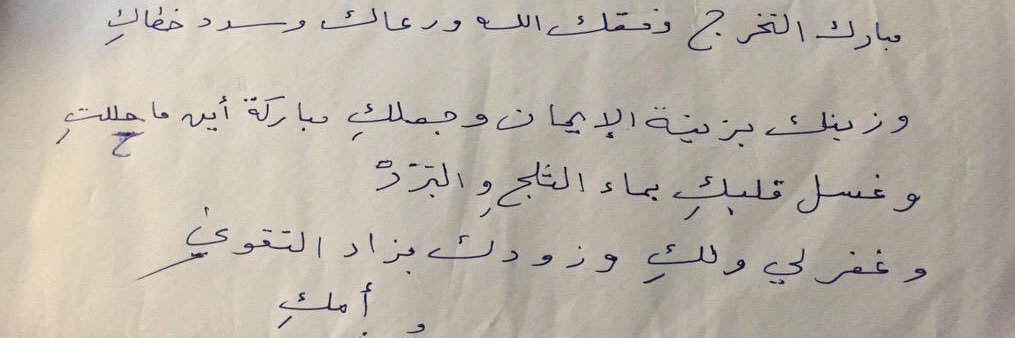 مبارك التخرج وفقك الله ورعاك وسدد خطاكِ
وزينك بزينة الإيمان وجعلكِ مباركة أين ما حللتِ
وغسل قلبكِ بماء الثلج والبَرَدْ
وغفر لي ولكِ وزودك بزاد التقوى
أمكِ